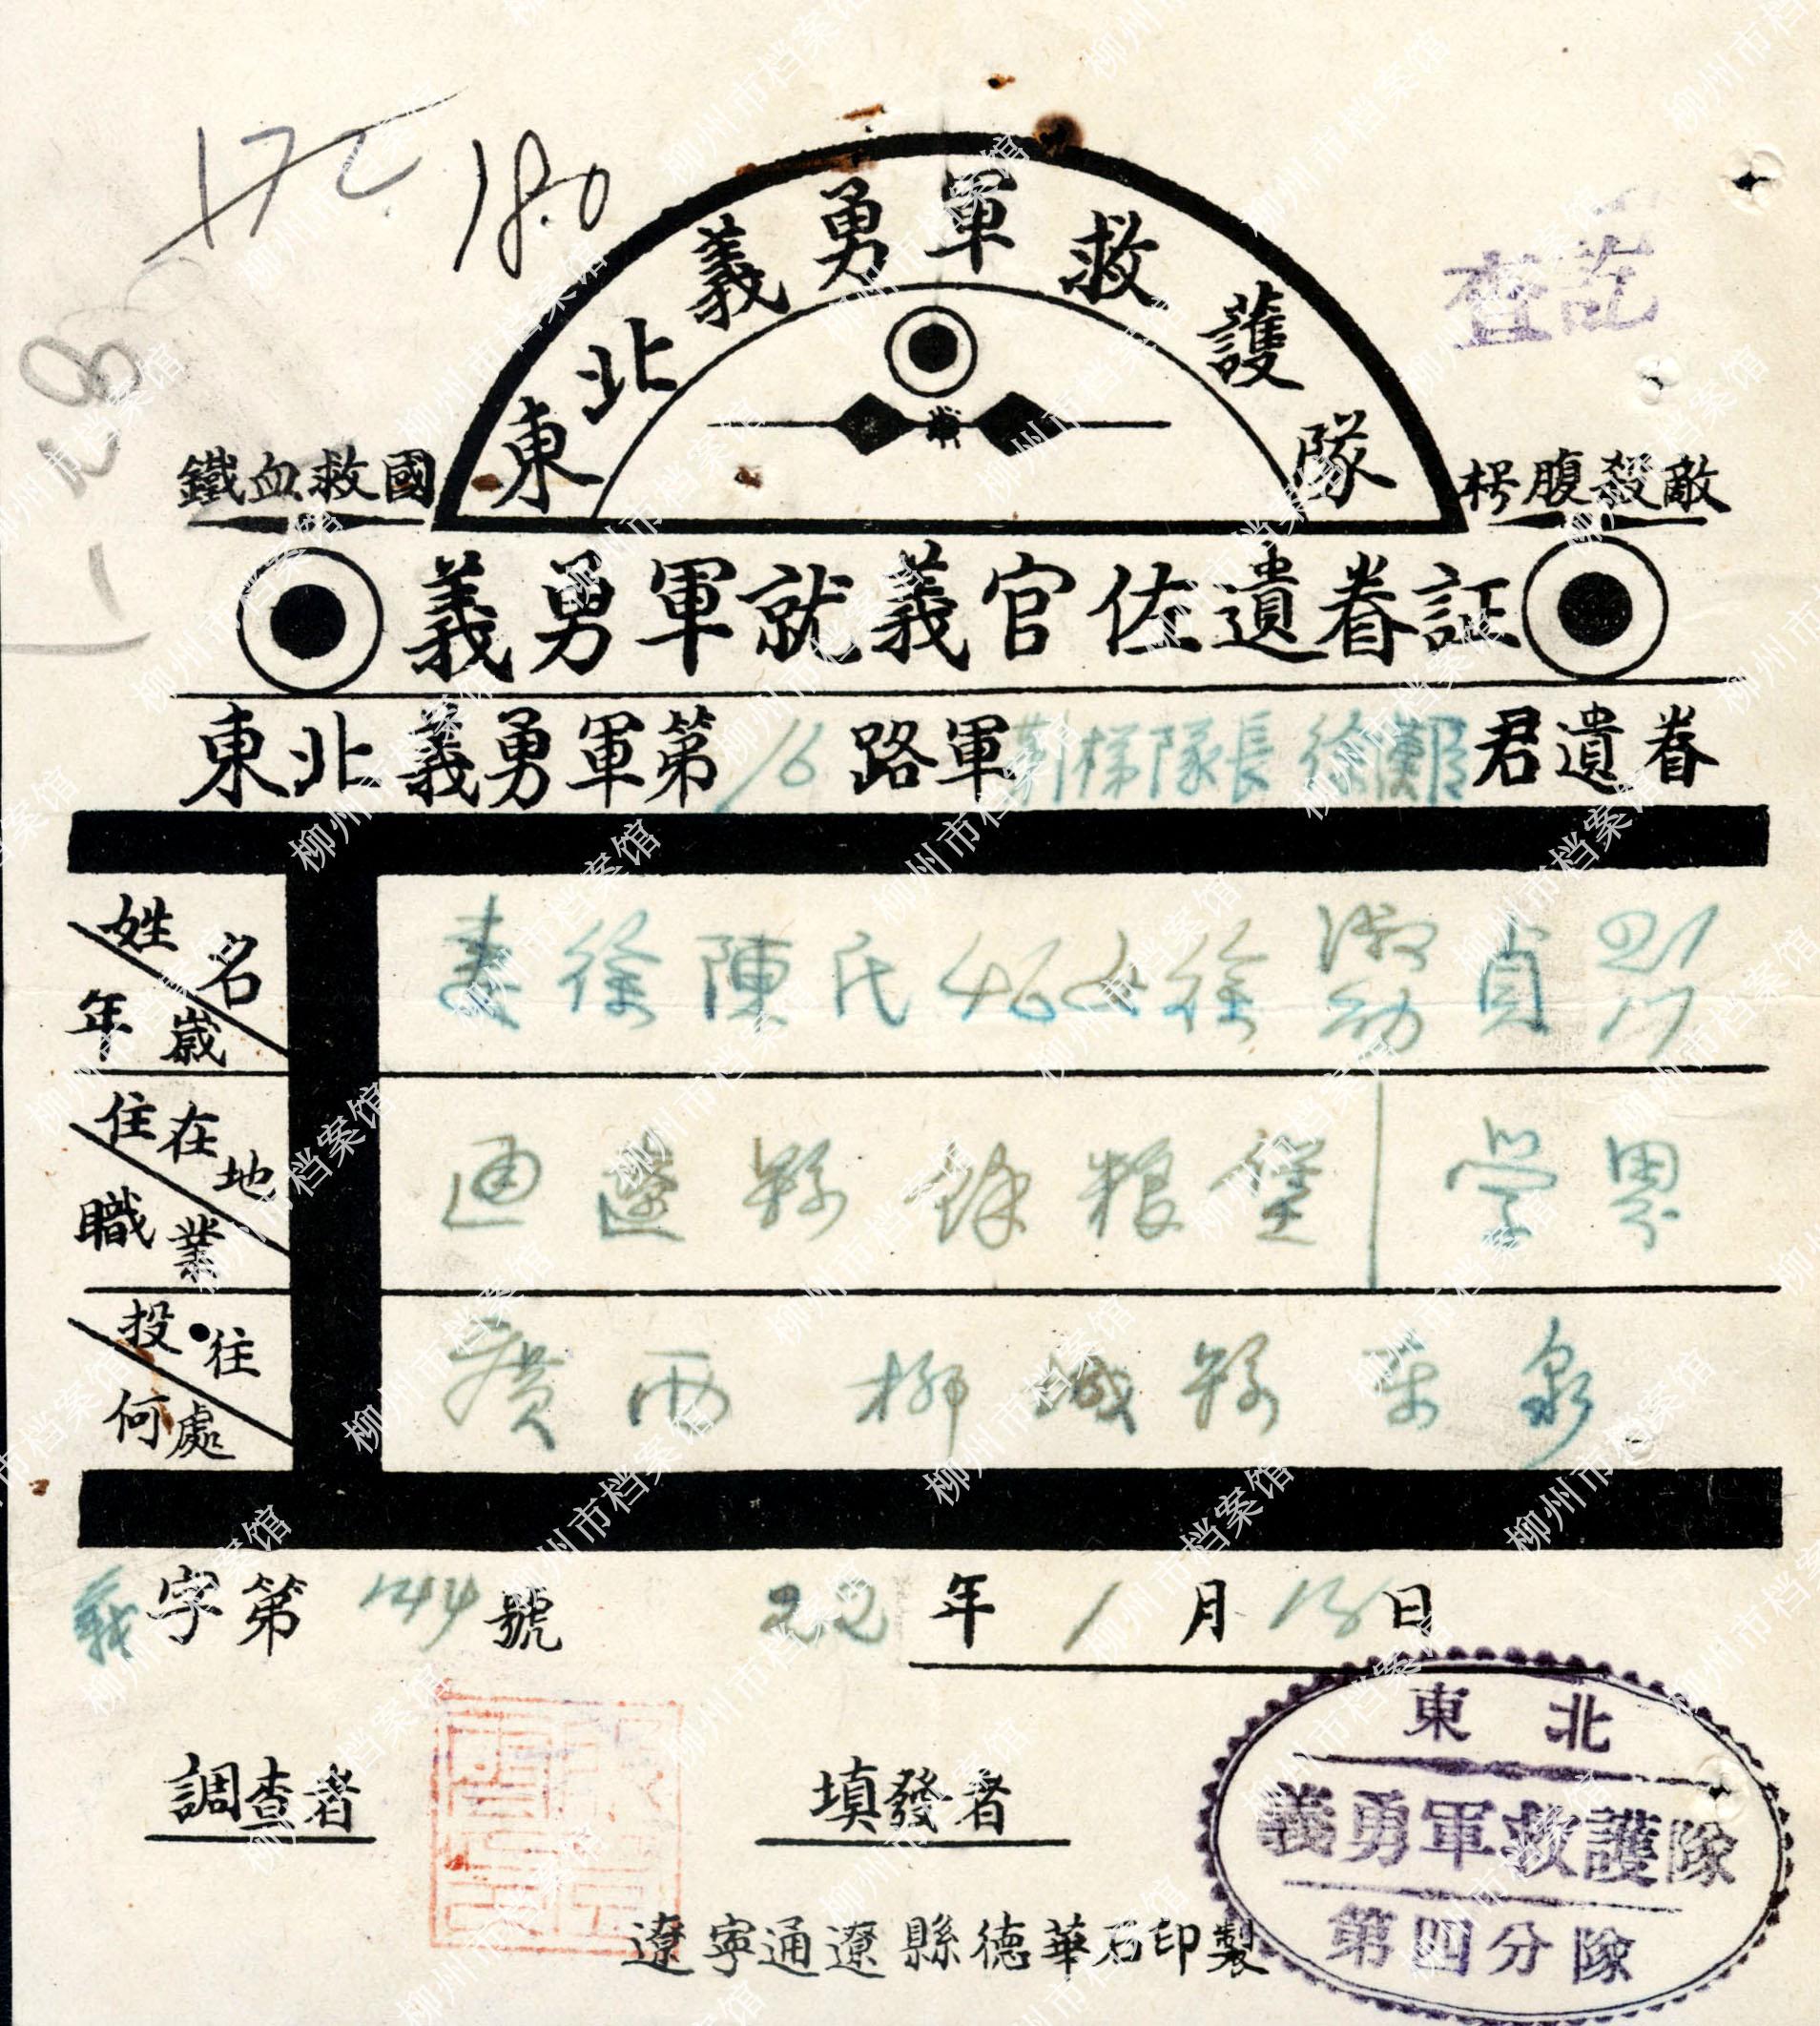 172 180
東北義勇軍救護隊
查訖
1-28
鐵血救國
枵腹殺敵
義勇軍就義官佐遺眷証
東北義勇軍第16路軍 梯隊長徐 君遺眷
姓名
年歲
妻徐陳氏46女徐淑貞21
幼 17
住在地
職業
通遼縣餘粮堡 學界
投往
何處
廣西 柳城縣 泉
義字第144號 22年1月18日
調查者
填發者
東北
義勇軍救護隊
第四分隊
遼寧通遼縣德華石印製
柳州市档案馆